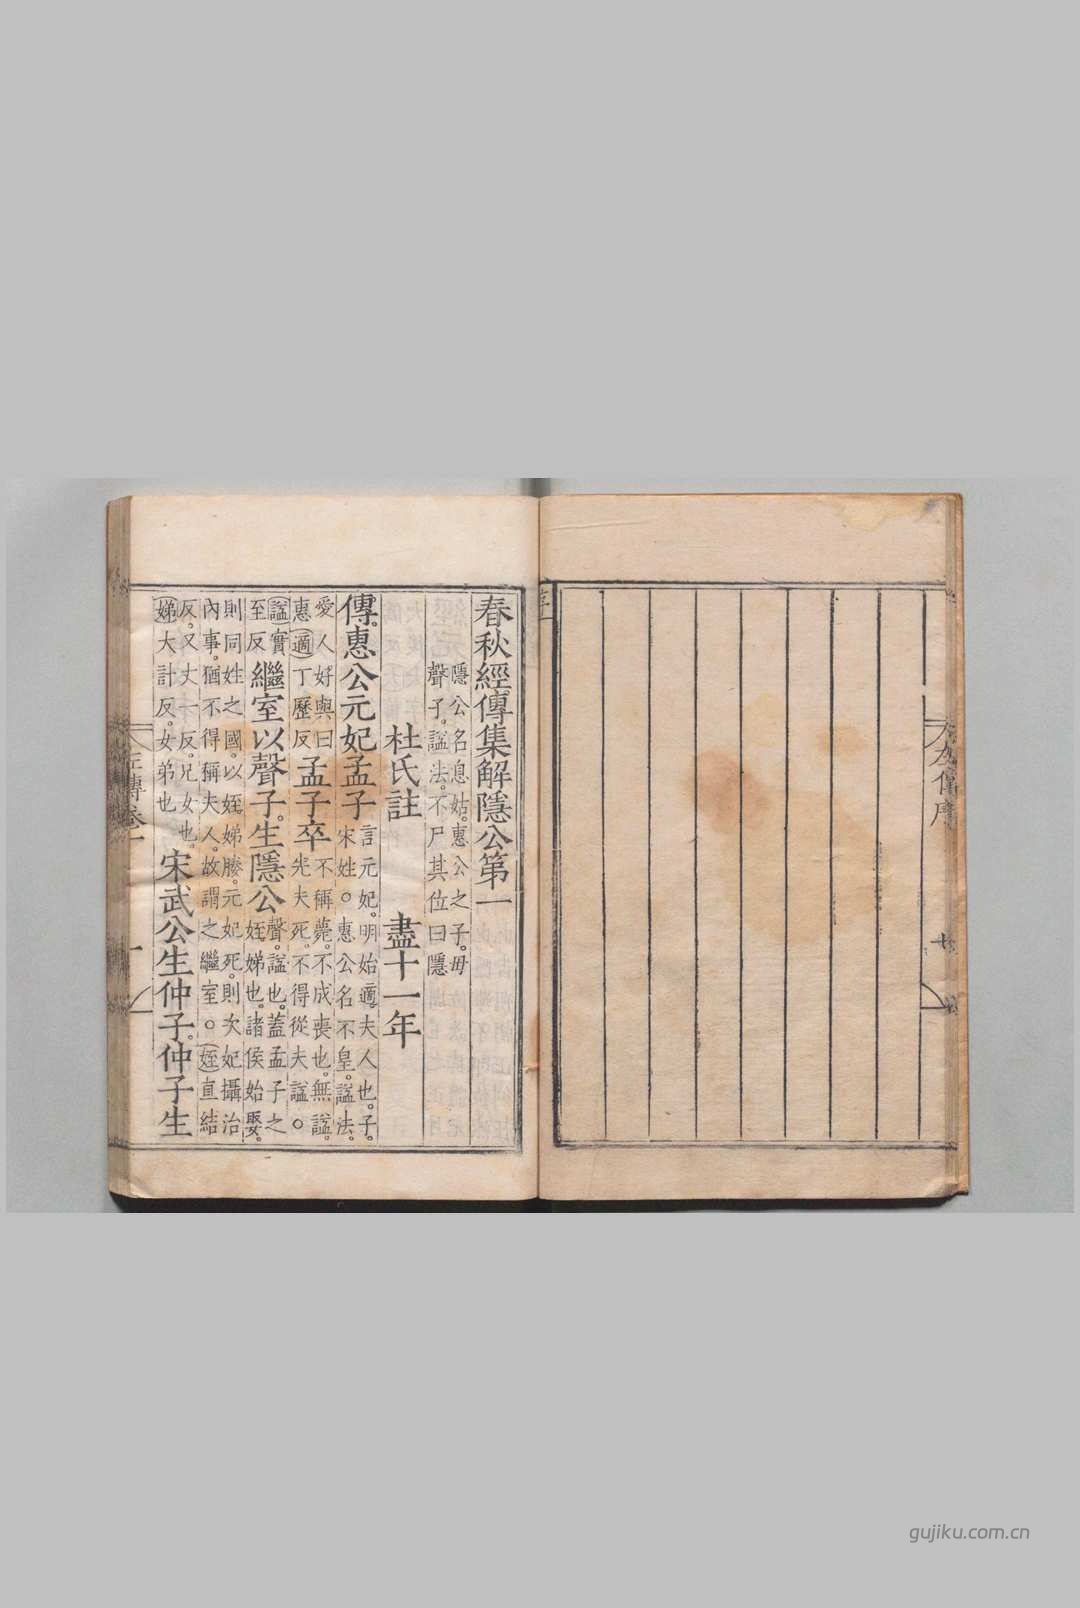 春秋經傳集解隱公第一
隱公名息姑。惠公之子。毋
聲子。諡法。不尸其位曰隱
杜氏註　盡十一年
傳。惠公元妃孟子
言元妃。明始適夫人也。子。
宋姓。惠公名不皇。諡法。
愛人好與曰
惠適丁歷反
孟子卒
不稱薨。不成喪也。無諡。
先夫死。不得從夫諡。○
諡實
至反
繼室以聲子。生隱公
聲。諡也。蓋孟子之
姪娣也。諸侯始娶。
則同姓之國。以姪娣媵。元妃死。則次妃攝治
內事。猶不得稱夫人。故謂之繼室。○姪直結
反。又丈一反。兄女也。
娣大計反。女弟也
宋武公生仲子。仲子生
左傳卷一
一
gujiku.com.cn